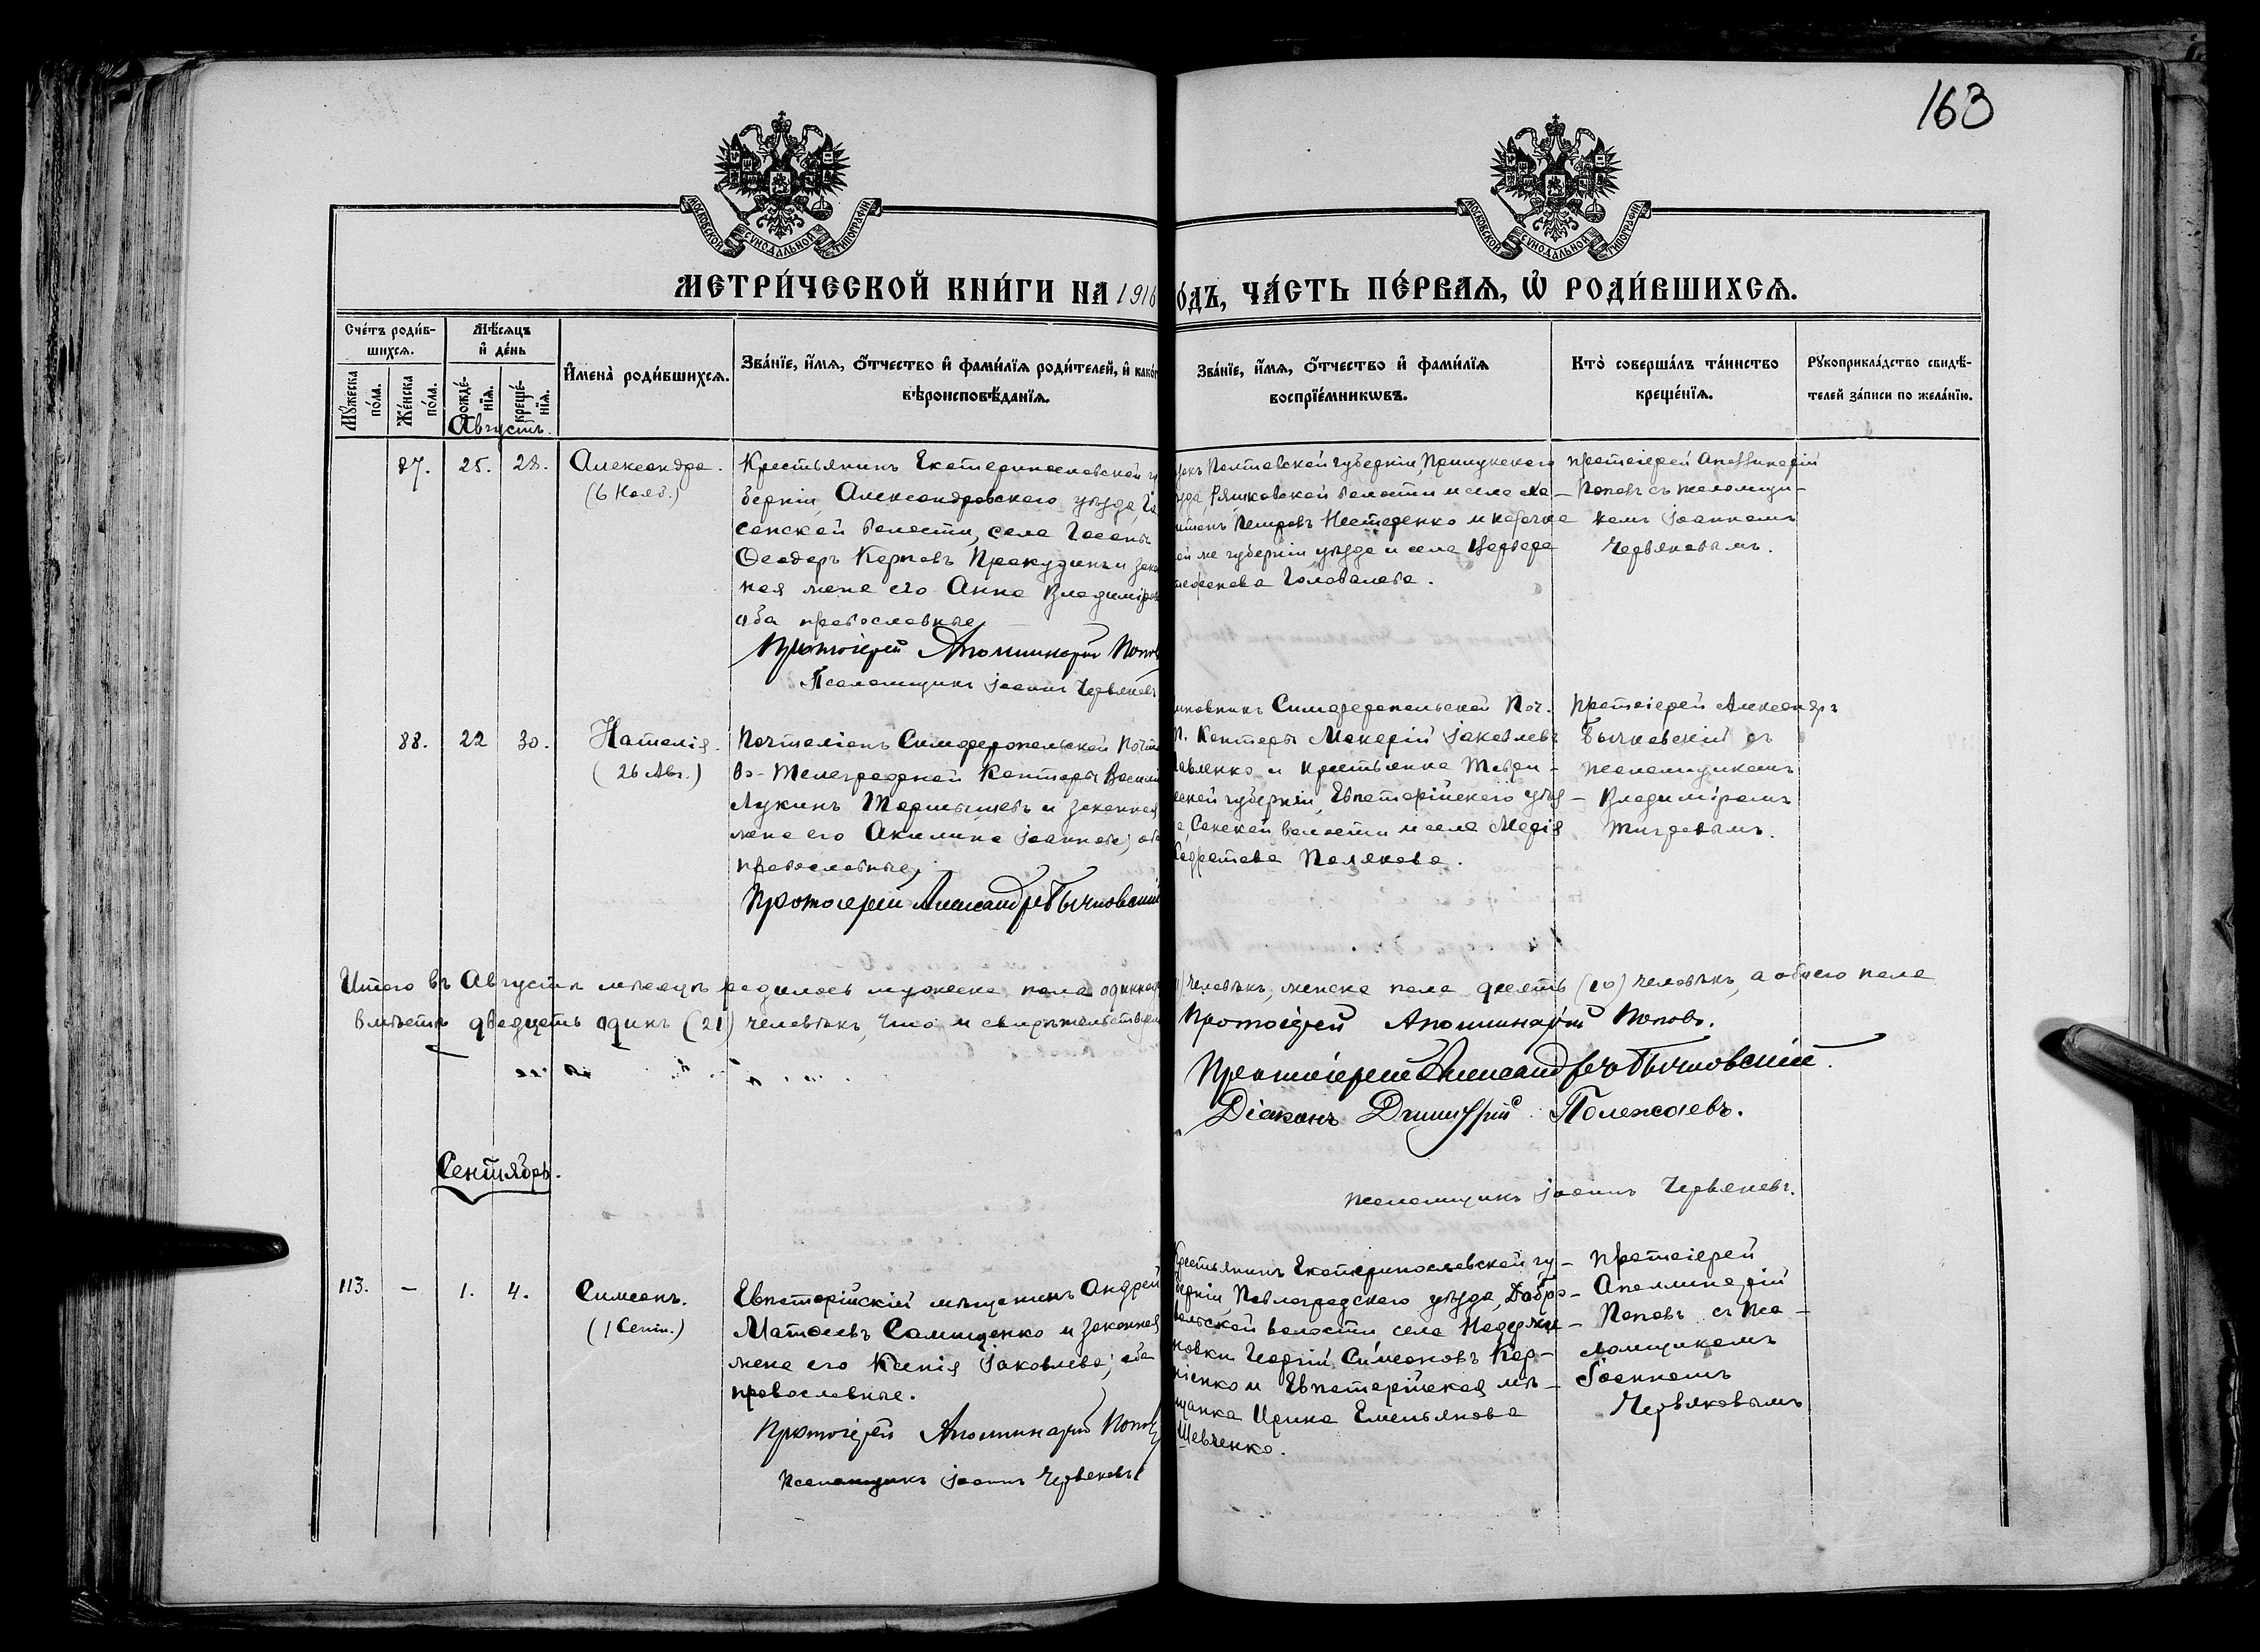 163
МОСКОВСКОЙ СУНОДАЛЬНОЙ ТИПОГРАФІИ
МОСКОВСКОЙ СУНОДАЛЬНОЙ ТИПОГРАФІИ
МЕТРИ́ЧЕСКОЙ КНИ́ГИ НА 1916
О́ДЪ, ЧА́СТЬ ПЕ́РВАѦ, Ѡ҆ РОДИ́ВШИХСѦ.
Сче́тъ роди́в-
шихсѧ.
Мѣ́сѧцъ
и҆ де́нь
И҆мена̀ роди́вшихсѧ.
Зва́нїе, и҆́мѧ, ѻ҆́тчество и҆ фами́лїѧ роди́телей, и҆ како́г
вѣроисповѣ́данїѧ.
Мꙋ́жеска
по́ла.
Же́нска
по́ла.
рожде́-
нїѧ.
креще́-
нїѧ.
Зва́нїе, и҆́мѧ, ѻ҆́тчество и҆ фами́лїѧ
воспрїе́мникѡвъ.
Кто̀ соверша́лъ та́инство
креще́нїѧ.
Рꙋкоприкла́дство свидѣ́-
телей за́писи по жела́нїю.
Августъ.
87. 25. 28. Александра.
(6 Нояб.)
Крестьянинъ Екатеринославской гу
берніи, Александровскаго уѣзда, Га
сонской волости, села
Ѳеодоръ Карповъ Прокудинъ и зако
ная жена его Анна Владимірова
оба православные
Протоіерей Аполлинарій Попов
Псаломщикъ Іоаннъ Червяковъ
Полтавской губерніи, Прилукскаго
волости и села
Петровъ Нестеренко и
ой же губерніи уѣзда и села Варвара
Головачева.
Протоіерей Аполлинарій
Поповъ съ псаломщи-
комъ Іоанномъ
Червяковымъ.
88. 22 30. Наталія.
(26 Авг.)
Почталіонъ Симферопольской Почто
во-Телеграфной Конторы Васили
Лукинъ и законная
жена его Акилина Іоаннова; оба
православные.
Протоіерей Александръ Бычковскій
иновникъ Симферопольской Поч.
Конторы Макарій Іаковлевъ
авленко и крестьянка Таври-
ческой губерніи, Евпаторійскаго уѣз-
а, Сакской волости и села Марія
Полякова.
Протоіерей Александръ
Бычковскій съ
псаломщикомъ
Владиміромъ
Тигровымъ.
Итого въ Августѣ мѣсяцѣ родилось мужеска пола одиннад
человѣкъ, женска пола десять (10) человѣкъ, а обоего пола
вмѣстѣ двадцать одинъ (21) человѣкъ, что и свидѣтельствуем
Протоіерей Аполлинарій Поповъ.
Протоіерей Александръ Бычковскій.
Діаконъ Димитрій Полежаевъ.
Псаломщикъ Іоаннъ Червяковъ.
Сентябрь.
113. – 1. 4. Симеонъ.
(1 Сент.)
Евпаторійскій мѣщанинъ Андрей
Матѳеевъ Самищенко и законная
жена его Ксенія Іаковлева; оба
православные.
Протоіерей Аполлинарій Попов
Псаломщикъ Іоаннъ Червяковъ
Крестьянинъ Екатеринославской гу-
берніи, Павлоградскаго уѣзда, Добро-
вольской волости села Надежи-
новки Георгій Симеоновъ Кор-
ніенко и Евпаторійская мѣ-
щанка Ирина Емельянова
Шевченко.
Протоіерей
Аполлинарій
Поповъ съ Пса-
ломщикомъ
Іоанномъ
Червяковымъ